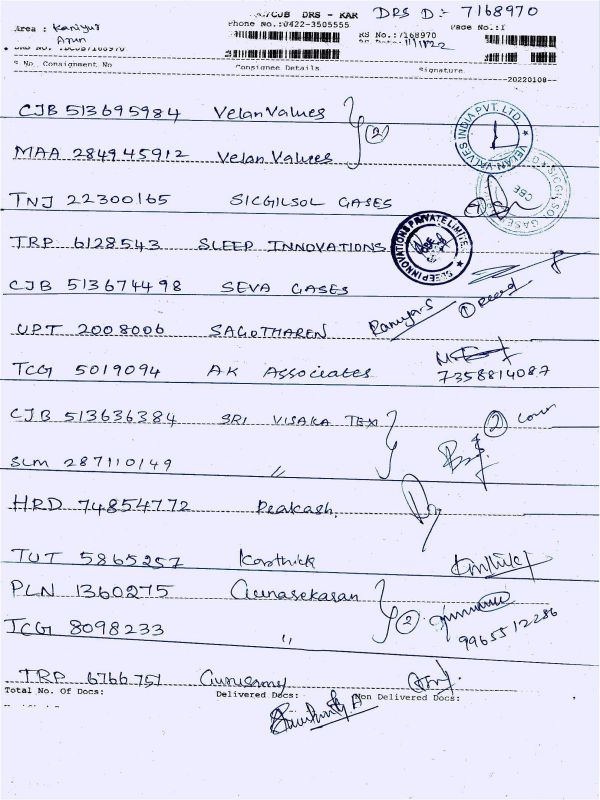 /CJB DRS - KAR DRS D:- 7168970
Phone No.:0422-3505555
Area : Kaniyur RS No.:7168970 Page No.:1
Arun
S No. Consignment No Consignee Details Signature
20220108
CJB 513695984 Velan Values (2)
MAA 284945912 Velan Values
VELAN VALVES INDIA PVT. LTD.
TNJ 22300165 SICGILSOL GASES
SICGILSOL GASES CBE
TRP 6128543 SLEEP INNOVATIONS
SLEEP INNOVATIONS PRIVATE LIMITED
CJB 513674498 SEVA GASES
UPT 2008006 SAGOTHAREN
TCG 5019094 AK Associates
7358814087
CJB 513636384 SRI VISAKA TEX (2)
SLM 287110149 "
HRD 74854772 Prakash
TUT 5865257 Karthick
PLN 1360275 Gunasekaran
(2)
TCG 8098233 " 9965512286
TRP 6766751 Gurusamy
Total No. Of Docs: Delivered Docs: Non Delivered Docs: